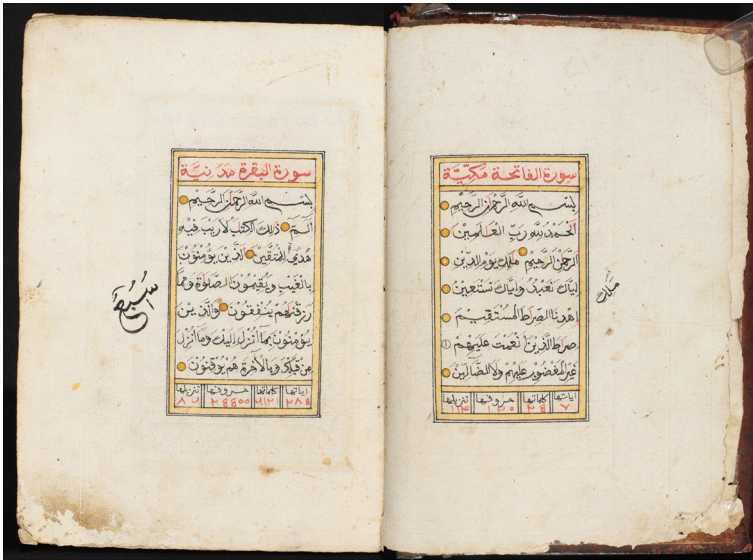 سورة الفاتحة مكيّة
بِسْمِ اللّٰهِ الرَّحْمٰنِ الرَّحِيْمِ
اَلْحَمْدُ لِلّٰهِ رَبِّ الْعٰلَمِيْنَ
الرَّحْمٰنِ الرَّحِيْمِ مٰلِكِ يَوْمِ الدِّيْنِ
اِيَّاكَ نَعْبُدُ وَاِيَّاكَ نَسْتَعِيْنُ
اِهْدِنَا الصِّرٰطَ الْمُسْتَقِيْمَ
صِرٰطَ الَّذِيْنَ اَنْعَمْتَ عَلَيْهِمْ
غَيْرِ الْمَغْضُوْبِ عَلَيْهِمْ وَلَا الضَّالِّيْنَ
اياتها كلماتها حروفها تنزيلها
٧
سورة البقرة مدنيّة
بِسْمِ اللّٰهِ الرَّحْمٰنِ الرَّحِيْمِ
الٓمّٓ ذٰلِكَ الْكِتٰبُ لَارَيْبَ فِيْهِ
هُدًى لِّلْمُتَّقِيْنَ الَّذِيْنَ يُؤْمِنُوْنَ
بِالْغَيْبِ وَيُقِيْمُوْنَ الصَّلٰوةَ وَمِمَّا
رَزَقْنٰهُمْ يُنْفِقُوْنَ وَالَّذِيْنَ
يُؤْمِنُوْنَ بِمَآ اُنْزِلَ اِلَيْكَ وَمَآ اُنْزِلَ
مِنْ قَبْلِكَ وَبِالْاٰخِرَةِ هُمْ يُوْقِنُوْنَ
اياتها كلماتها حروفها تنزيلها